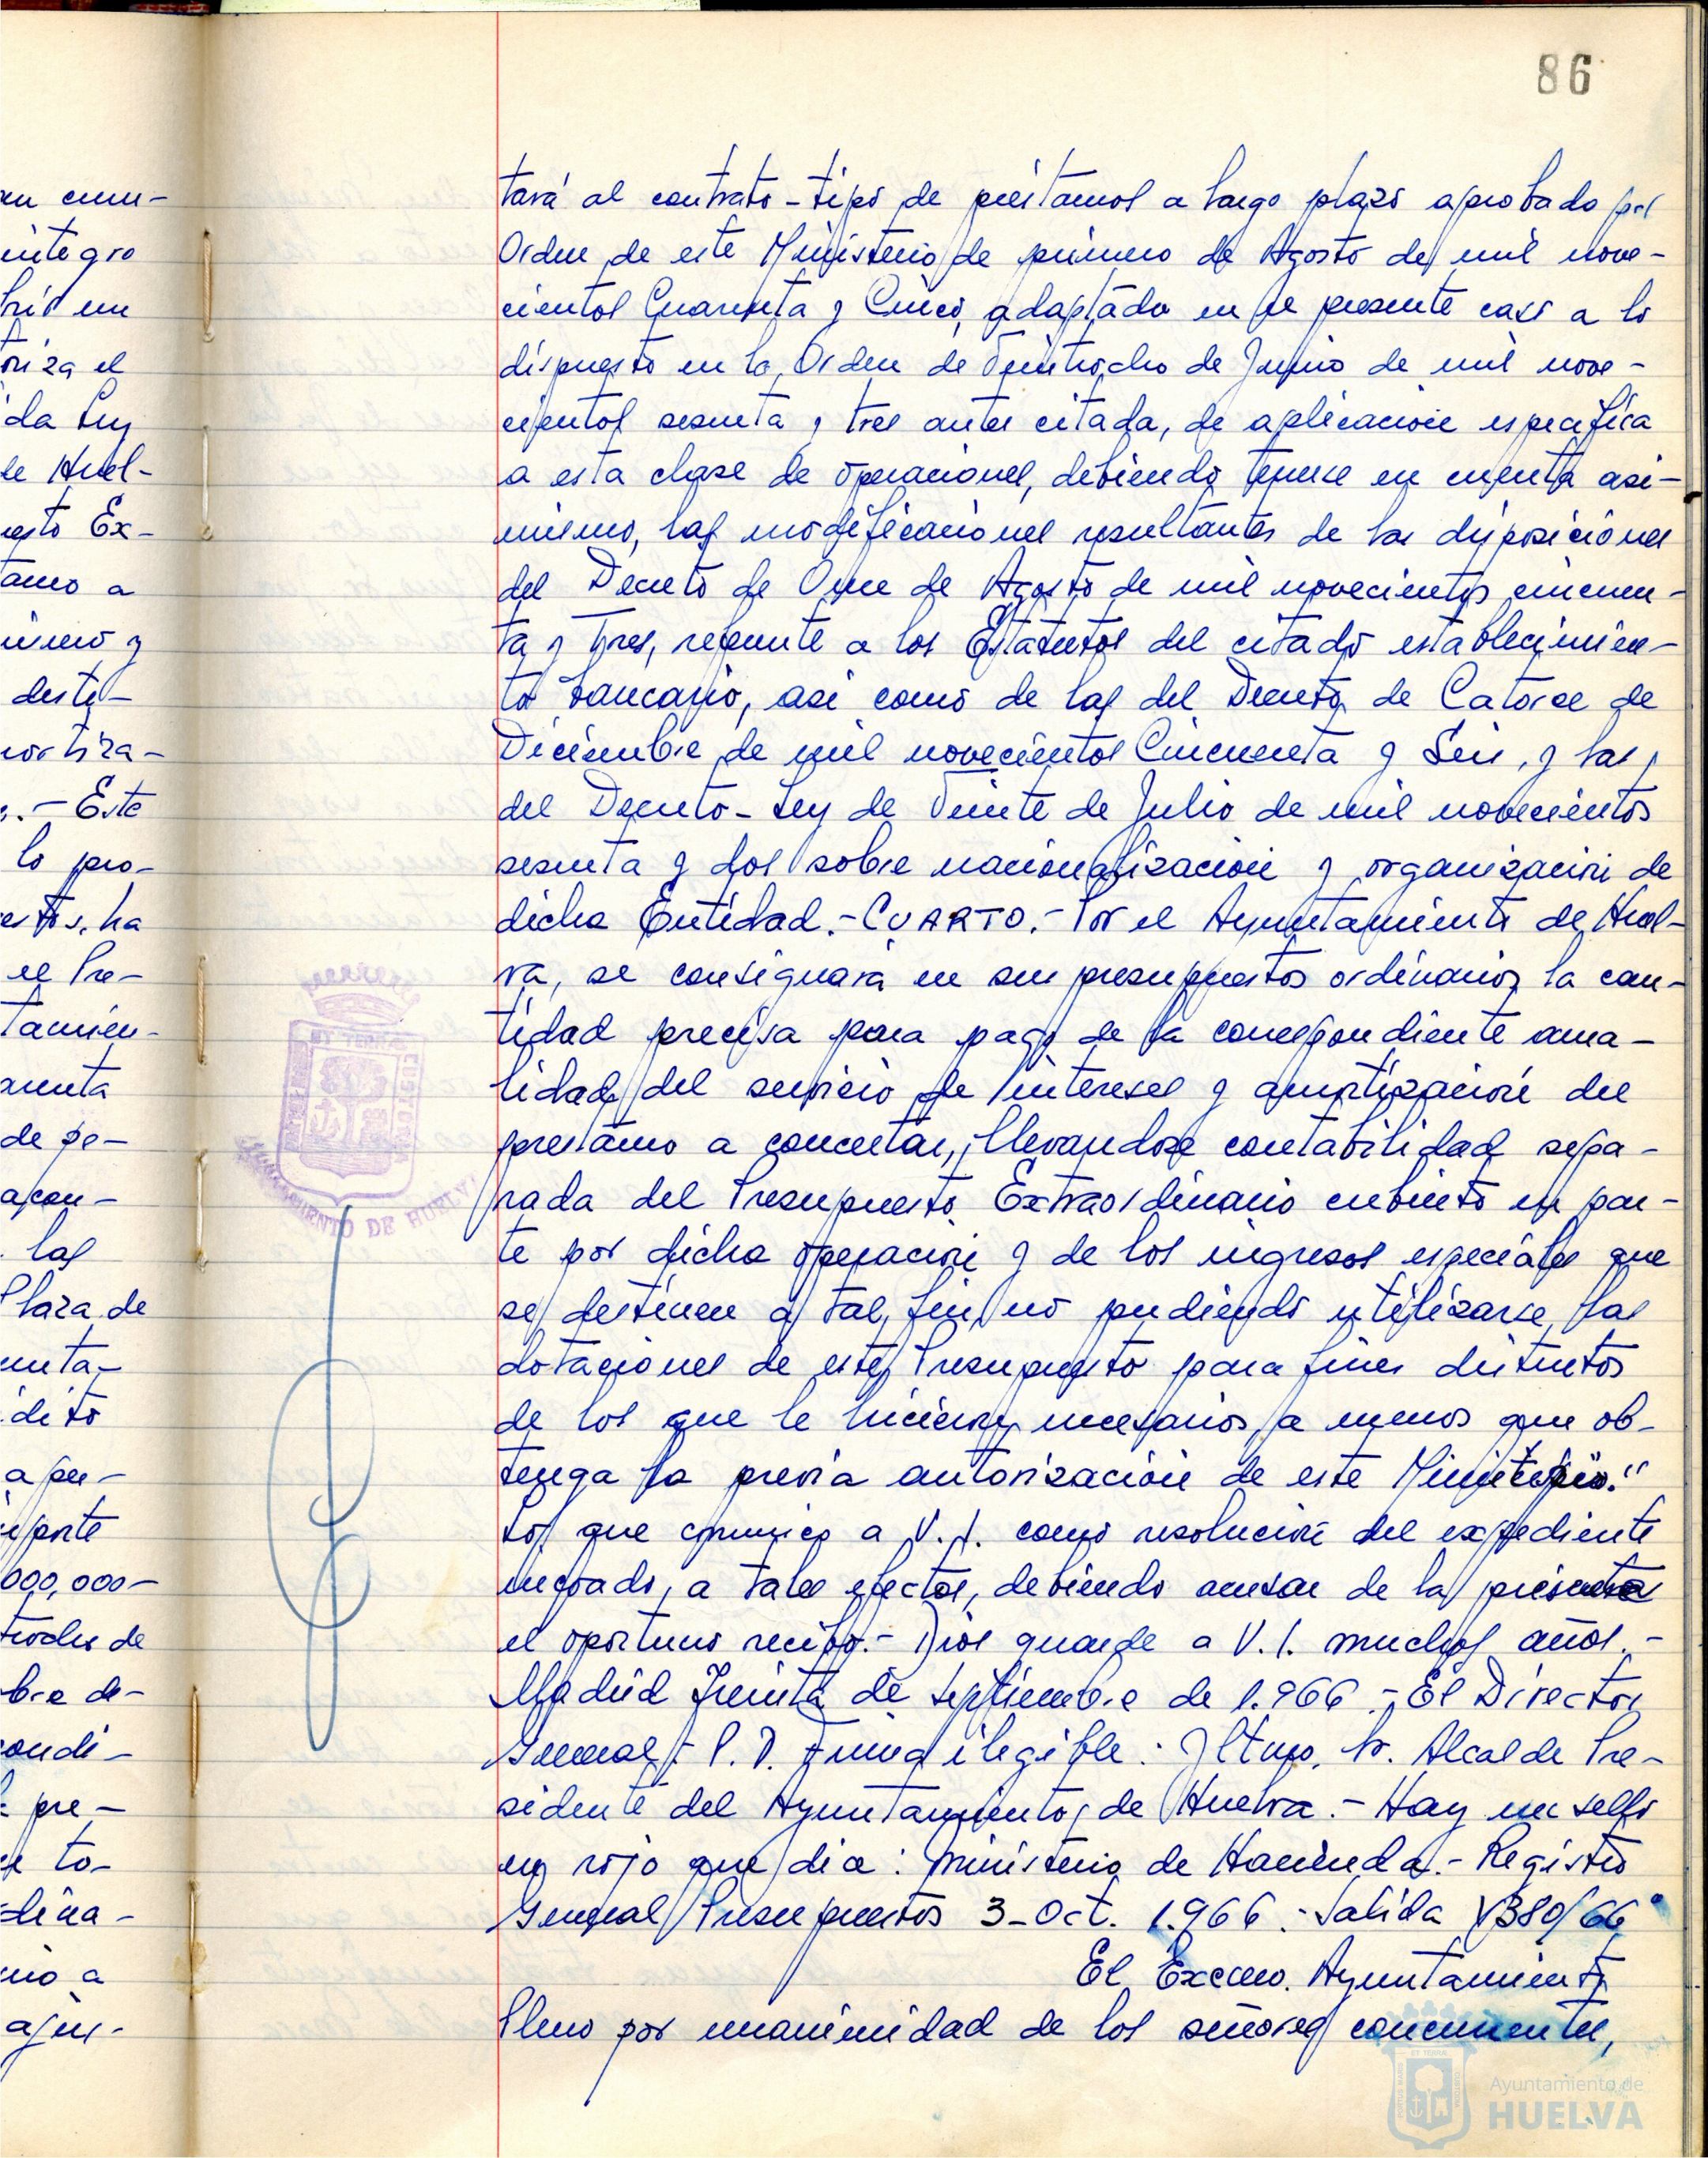 86
tará al contrato-tipo de préstamos a largo plazo aprobado por
Orden de este Ministerio de primero de Agosto de mil nove-
cientos Cuarenta y Cinco, adaptado en el presente caso a lo
dispuesto en la Orden de Veintiocho de Junio de mil nove-
cientos sesenta y tres antes citada, de aplicación específica
a esta clase de operaciones, debiendo tenerse en cuenta asi-
mismo, las modificaciones resultantes de las disposiciones
del Decreto de Once de Agosto de mil novecientos cincuen-
ta y Tres, referente a los Estatutos del citado establecimien-
to bancario, asi como de las del Decreto de Catorce de
Diciembre de mil novecientos Cincuenta y Seis, y las
del Decreto-Ley de Veinte de Julio de mil novecientos
sesenta y dos sobre nacionalización y organización de
dicha Entidad.-CUARTO.-Por el Ayuntamiento de Huel-
va, se consignará en sus presupuestos ordinarios la can-
tidad precisa para pago de la correspondiente anua-
lidad del servicio de intereses y amortización del
prestamo a concertar, llevandose contabilidad sepa-
rada del Presupuesto Extraordinario cubierto en par-
te por dicha operación y de los ingresos especiales que
se destinen a tal fin, no pudiendo utilizarse las
dotaciones de este Presupuesto para fines distintos
de los que le hicieron necesarios, a menos que ob-
tenga la previa autorización de este Ministerio."
Lo que comunico a V.I. como resolución del expediente
incoado, a tales efectos, debiendo acusar de la presente
el oportuno recibo.- Dios guarde a V.I. muchos años.-
Madrid Treinta de Septiembre de 1.966.-El Director
General.- P.D. Firma ilegible.- Iltmo. Sr. Alcalde Pre-
sidente del Ayuntamiento de Huelva.- Hay un sello
en rojo que dice: Ministerio de Hacienda.- Registro
General Presupuestos 3-Oct. 1.966.-Salida
El Excmo. Ayuntamiento
Pleno por unanimidad de los señores concurrentes,
integro
oriza el
da Ley
de Huel-
esto Ex-
tamo a
desti-
mortiza-
.-Este
lo pro-
ha
el Pre-
tamien-
de pe-
las
Plaza de
dito
000,000-
de
bre de-
condi-
pre-
to-
a
AYUNTAMIENTO DE HUELVA
Ayuntamiento de
HUELVA